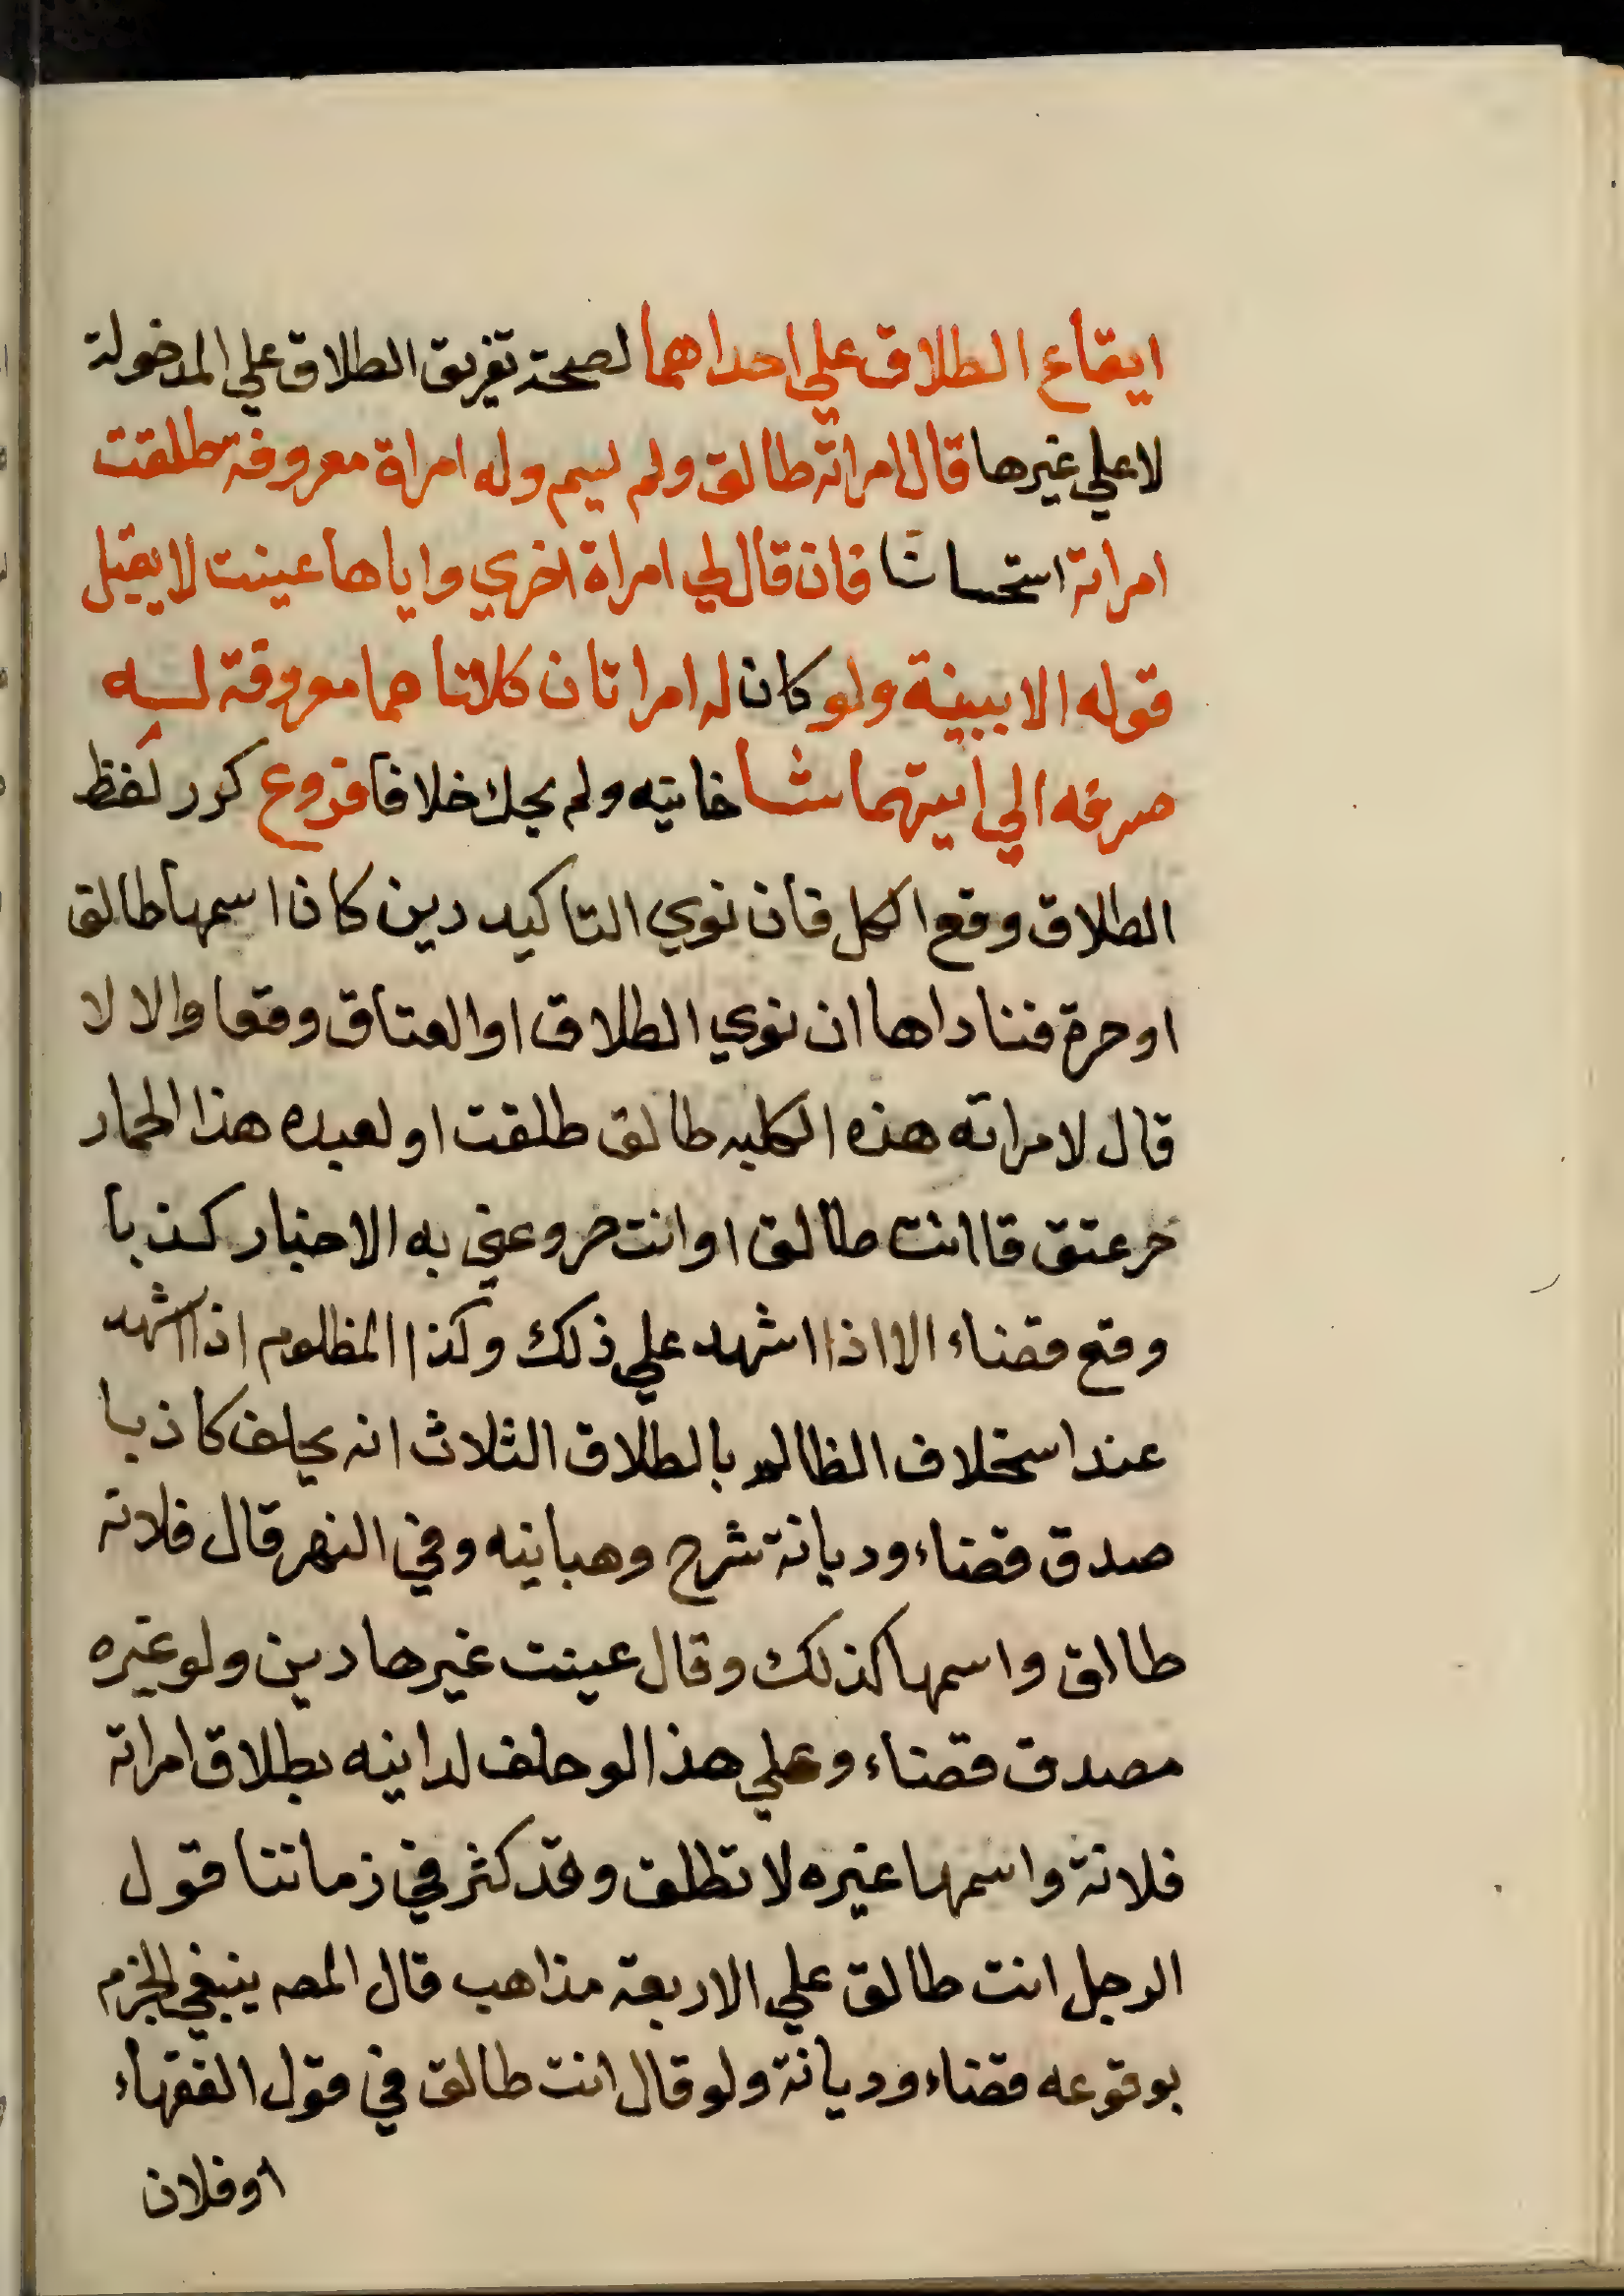 ايقاع الطلاق علي احداهما لصحة تفريق الطلاق علي المدخولة
لا علي غيرها قال امراته طالق ولم يسم وله امراة معروفة طلقت
امراته استحسانا فان قال لي امراة اخري واياها عينت لا يقبل
قوله الا ببينة ولو كان له امراتان كلاتاهما معروفة له
صرفه الي ايتهما شا خانيه ولم يحك خلافا فروع كرر لفظ
الطلاق وقع الكل فان نوي التاكيد دين كان اسمها طالق
او حرة فناداها ان نوي الطلاق او العتاق وقعا والا لا
قال لامراته هذه الكلبه طالق طلقت او لعبده هذا الحمار
حر عتق قا انت طالق او انت حر وعني به الاخبار كذبا
وقع قضاء الا اذا اشهد علي ذلك وكذا المظلوم اذا اشهد
عند استحلاف الظالم بالطلاق الثلاث انه يحلف كاذبا
صدق قضاء وديانة شرح وهبانيه وفي النهر قال فلانه
طالق واسمها كذلك وقال عينت غيرها دين ولو غيره
صدق قضاء وعلي هذا لو حلف لداينه بطلاق امراته
فلانة واسمها غيره لا تطلق وقد كثر في زماننا قول
الرجل انت طالق علي الاربعة مذاهب قال المصـ ينبغي الجزم
بوقوعه قضاء وديانة ولو قال انت طالق في قول الفقهاء
او فلان